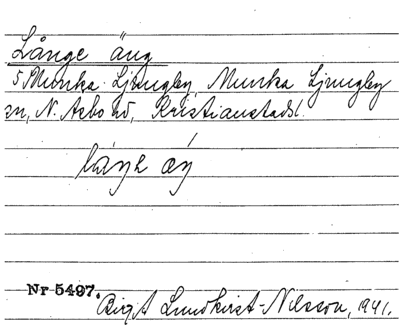 Långe äng
5 Munka Ljungby, Munka Ljungby
sn, N. Åsbo hd, Kristianstads l.
Nr 5497.
Birgit Lundkvist-Nilsson, 1941.